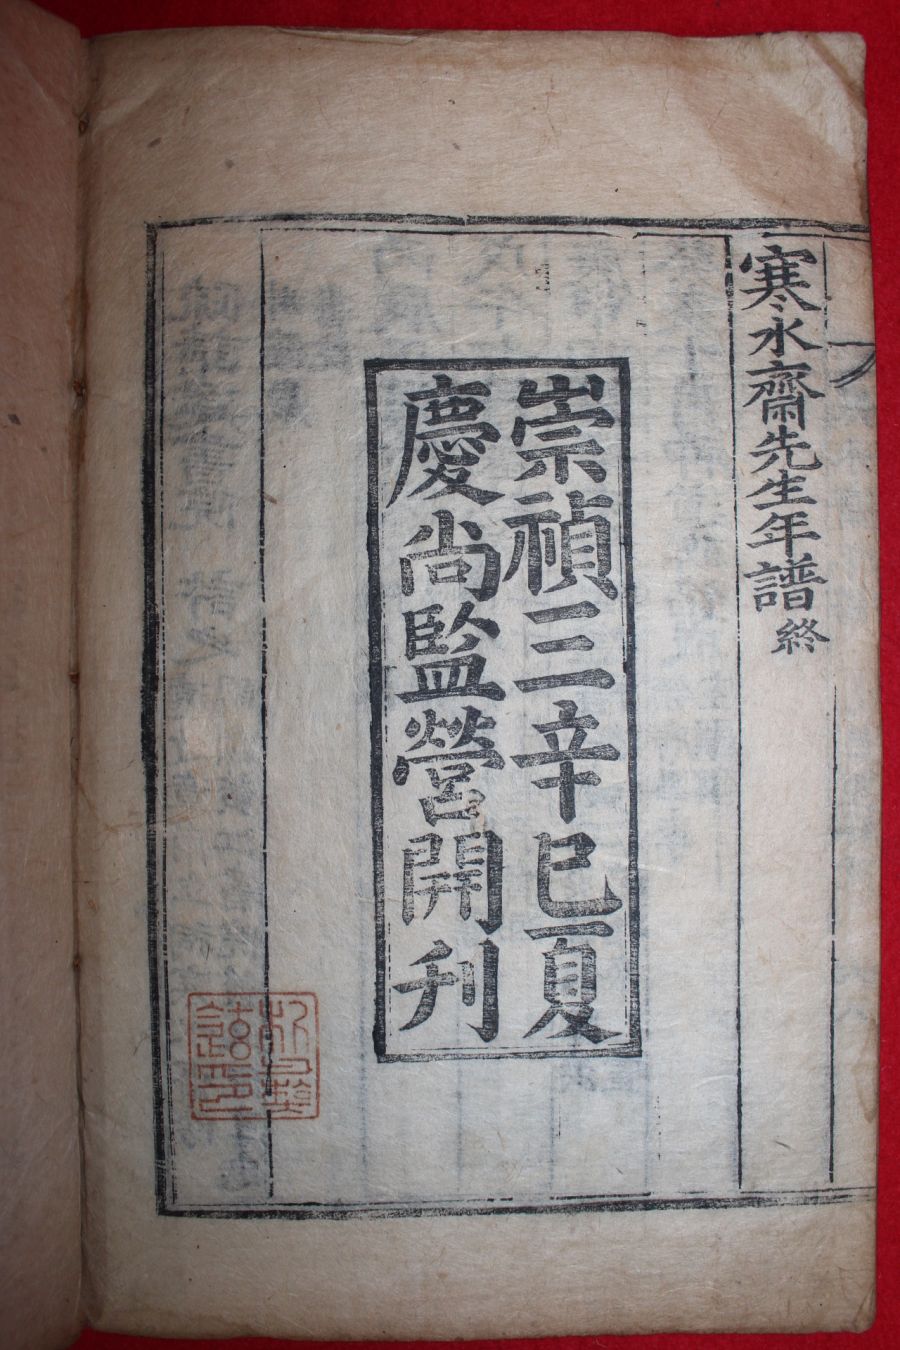 寒水齋先生年譜終
崇禎三辛巳夏
慶尚監營開刊